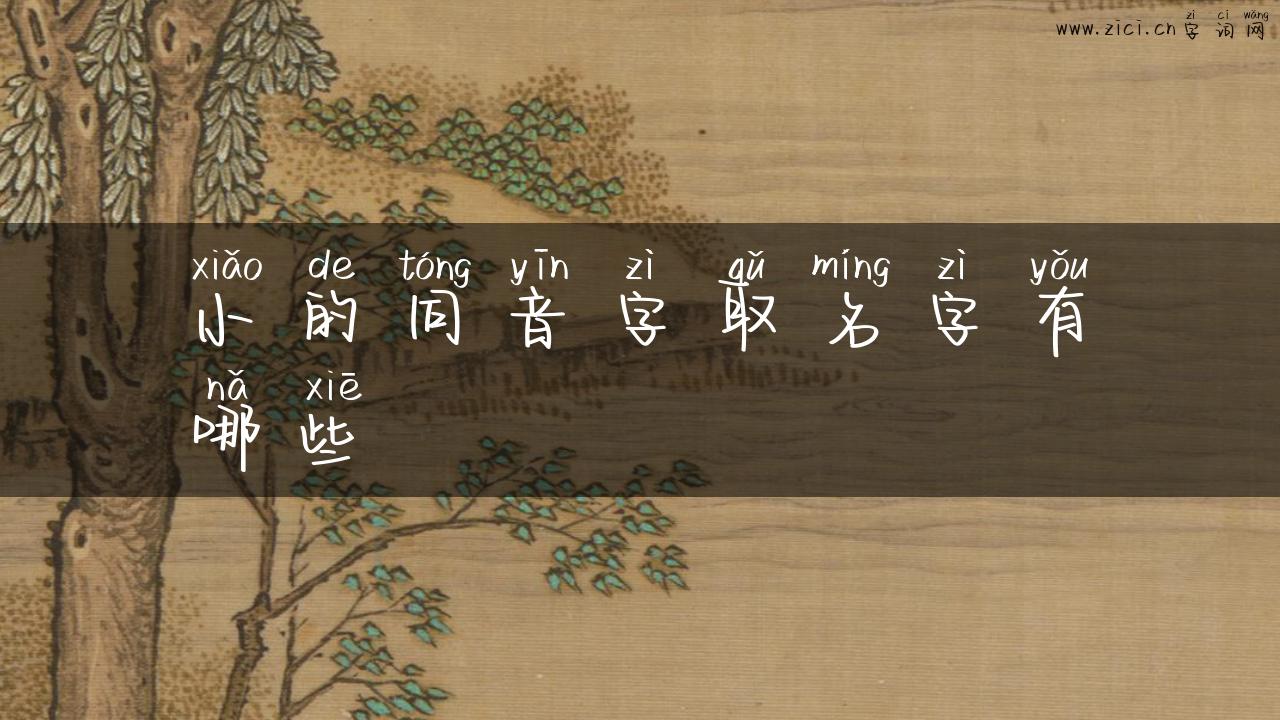 zì cí wǎng
www.zici.cn 字词网
xiǎo de tóng yīn zì qǔ míng zì yǒu
小的同音字取名字有
nǎ xiē
哪些